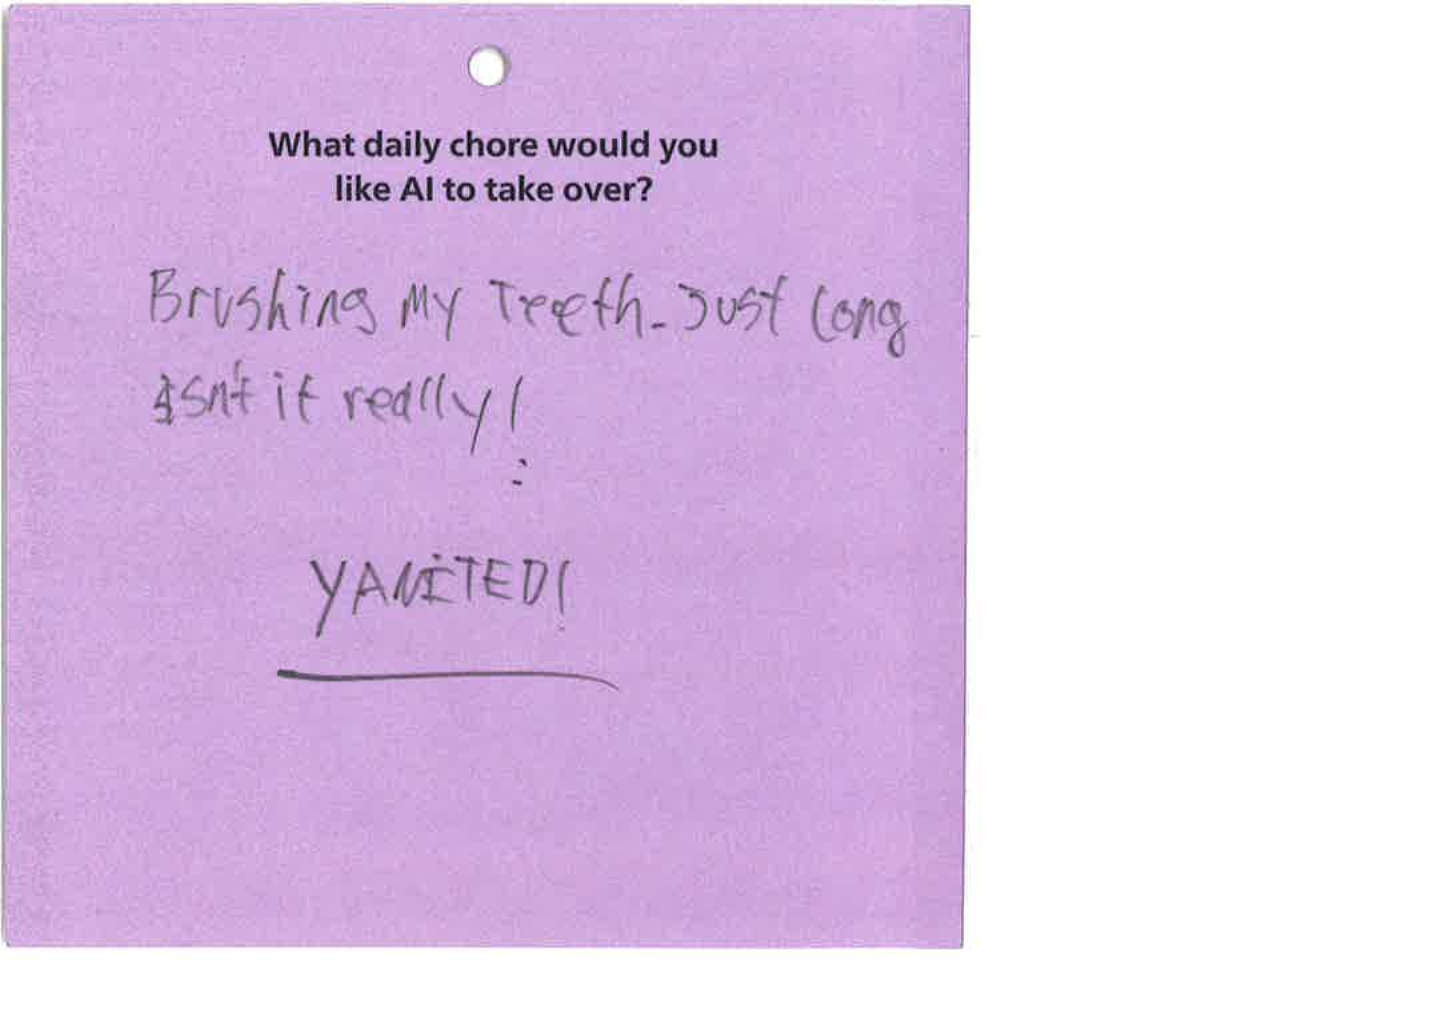 What daily chore would you
like AI to take over?
Brushing My Teeth. Just long
isn't it really!
YANITED!